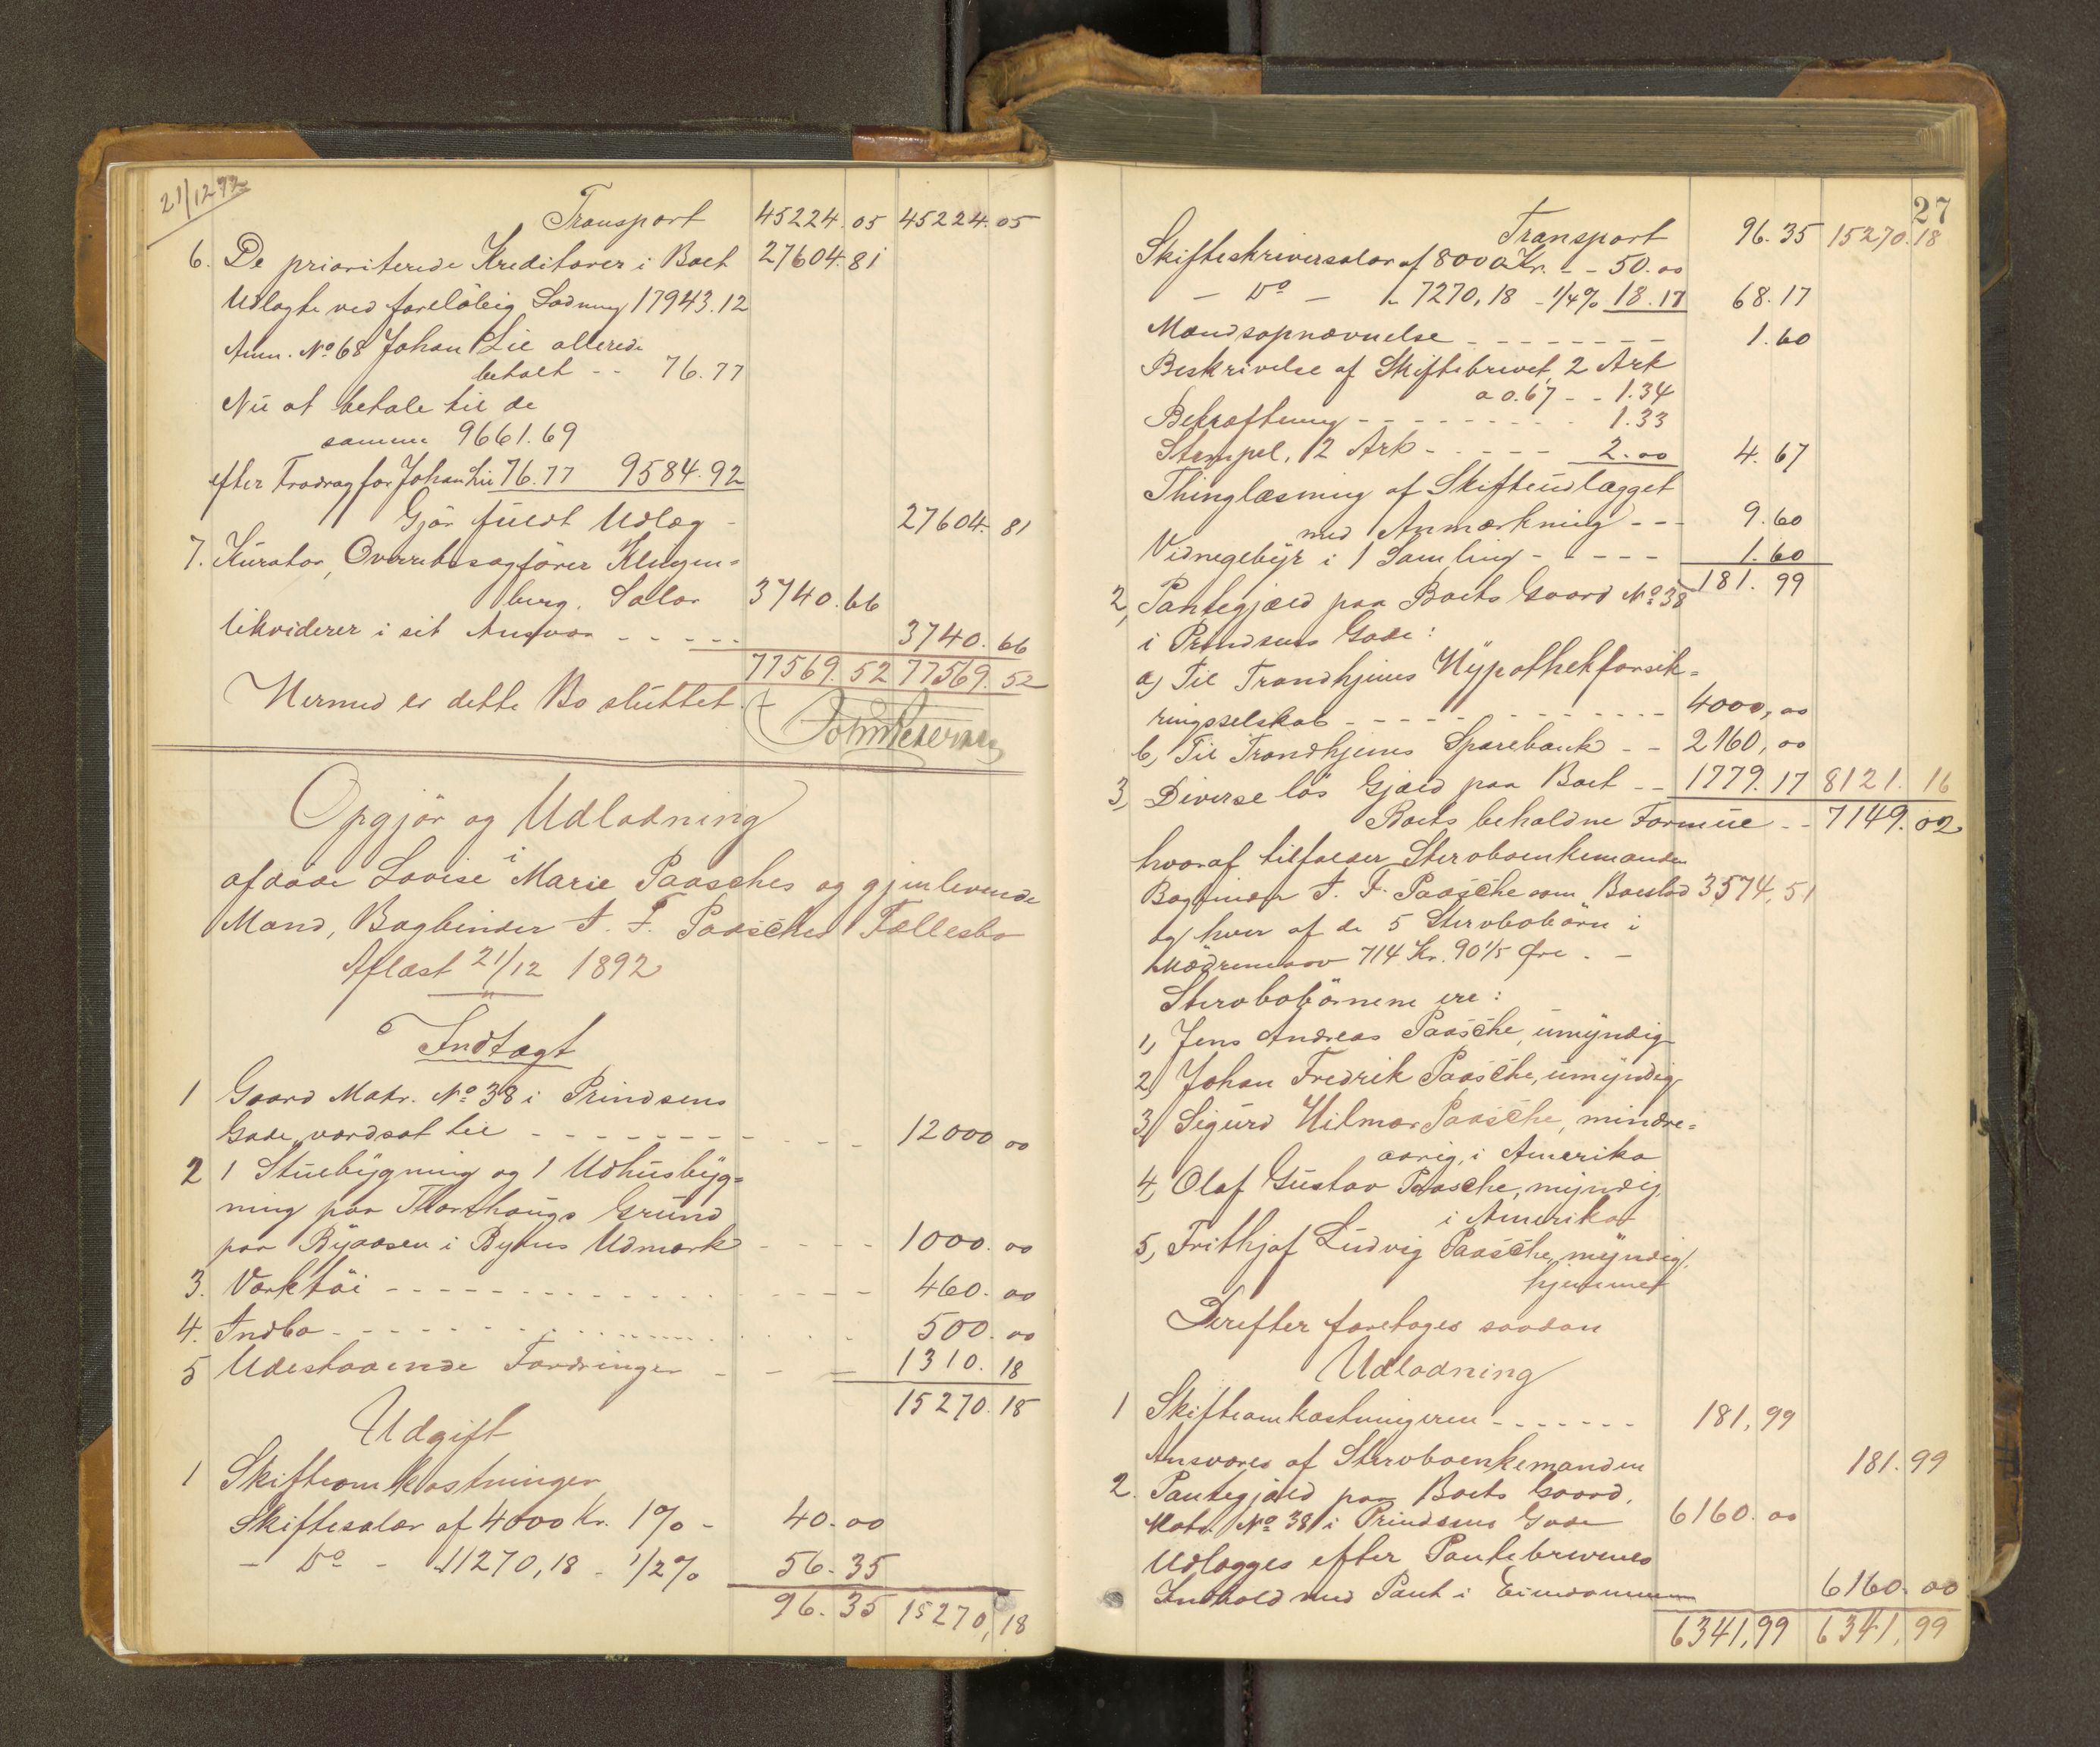 21/12 92
Transport 45224.05 45224.05
6. De prioriterede Kreditorer i Boet 27604.81
Udlagte ved foreløbig Lodning 17943.12
Anm. No 68 Johan Lie allerede
betalt -- 76.77
Nu at betale til de
samme 9661.69
efter Fradrag for Johan Lie 76.77 9584.92
Gjør fuldt Udlæg - 27604.81
7. Kurator, Overretssagfører Klingen=
berg. Salær 3740.66
likviderer i sit Ansvar ----- 3740.66
77569.52 77569.52
Hermed er dette Bo sluttet.
Opgjør og Udlodning
i
afdøde Lovise Marie Paasches og gjenlevende
Mand, Bogbinder J. F. Paasches Fællesbo
Aflæst 21/12 1892
Indtægt
1 Gaard Matr. No 38 i Prindsens
Gade værdsat til - - - - - - - - 12000 00
2 1 Stuebygning og 1 Udhusbyg=
ning paa Thorshaugs Grund
paa Byaasen i Byens Udmark - - - - 1000.00
3. Værktøi - - - - - - - - - - 460.00
4. Indbo - - - - - - - - - - 500.00
5 Udestaaende Fordringer - - - 1310.18
15270.18
Udgift
1 Skifteomkostninger
Skiftesalær af 4000 Kr. 1% - 40.00
- Do - - 11270,18 - 1/2% 56.35
96.35 15270,18
27
Transport 96.35 15270.18
Skifteskriversalær af 8000 Kr. - - 50.00
- Do - " 7270,18 - 1/4% 18.17 68.17
Mandsopnævnelse - - - - - - - - 1.60
Beskrivelse af Skiftebrevet, 2 Ark
a 0.67 - - 1.34
Bekræftning - - - - - - - - 1.33
Stempel, 2 Ark - - - - - 2.00 4.67
Thinglæsning af Skifteudlægget
med Anmærkning - - - 9.60
Vidnegebyr i 1 Samling - - - - - 1.60
181.99
2, Pantegjæld paa Boets Gaard No 38
i Prindsens Gade:
a) Til Trondhjems Hypothekforsik=
ringsselskab - - - - - - - - - 4000,00
b, Til Trondhjems Sparebank - - 2160,00
3, Diverse løs Gjæld paa Boet - - 1779.17 8121.16
Boets beholdne Formue - - 7149.02
hvoraf tilfalder Stervboenkemanden
Bogbinder J. F. Paasche som Boeslod 3574,51
og hver af de 5 Stervbobørn i
Mødrenearv 714 Kr. 90 1/5 Øre. -
Stervbobørnene ere:
1, Jens Andreas Paasche, umyndig
2, Johan Fredrik Paasche, umyndig
3, Sigurd Hilmar Paasche, mindre=
aarig, i Amerika
4, Olaf Gustav Paasche, myndig
i Amerika
5, Frithjof Ludvig Paasche, myndig,
hjemme
Derefter foretoges saadan
Udlodning
1 Skifteomkostningerne - - - - - - - 181,99
Ansvares af Stervboenkemanden 181.99
2. Pantegjæld paa Boets Gaard,
Matr. No 38 i Prindsens Gade 6160.00
Udlægges efter Pantebrevenes
Indhold med Pant i Eiendommen 6160.00
6341,99 6341,99